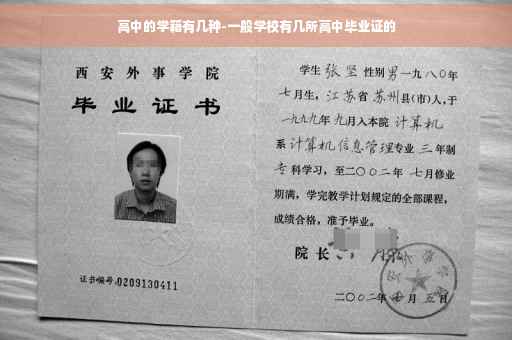 高中的学籍有几种-一般学校有几所高中毕业证的
西安外事学院
毕业证书
证书编号:0209130411
学生 张坚 性别 男 一九八〇年
七月生，江苏省苏州县(市)人，于
一九九九年九月入本院 计算机
系 计算机信息管理 专业 三 年制
专科学习，至二〇〇二年 七月修业
期满，学完教学计划规定的全部课程，
成绩合格，准予毕业。
院长
二〇〇二年 月五日